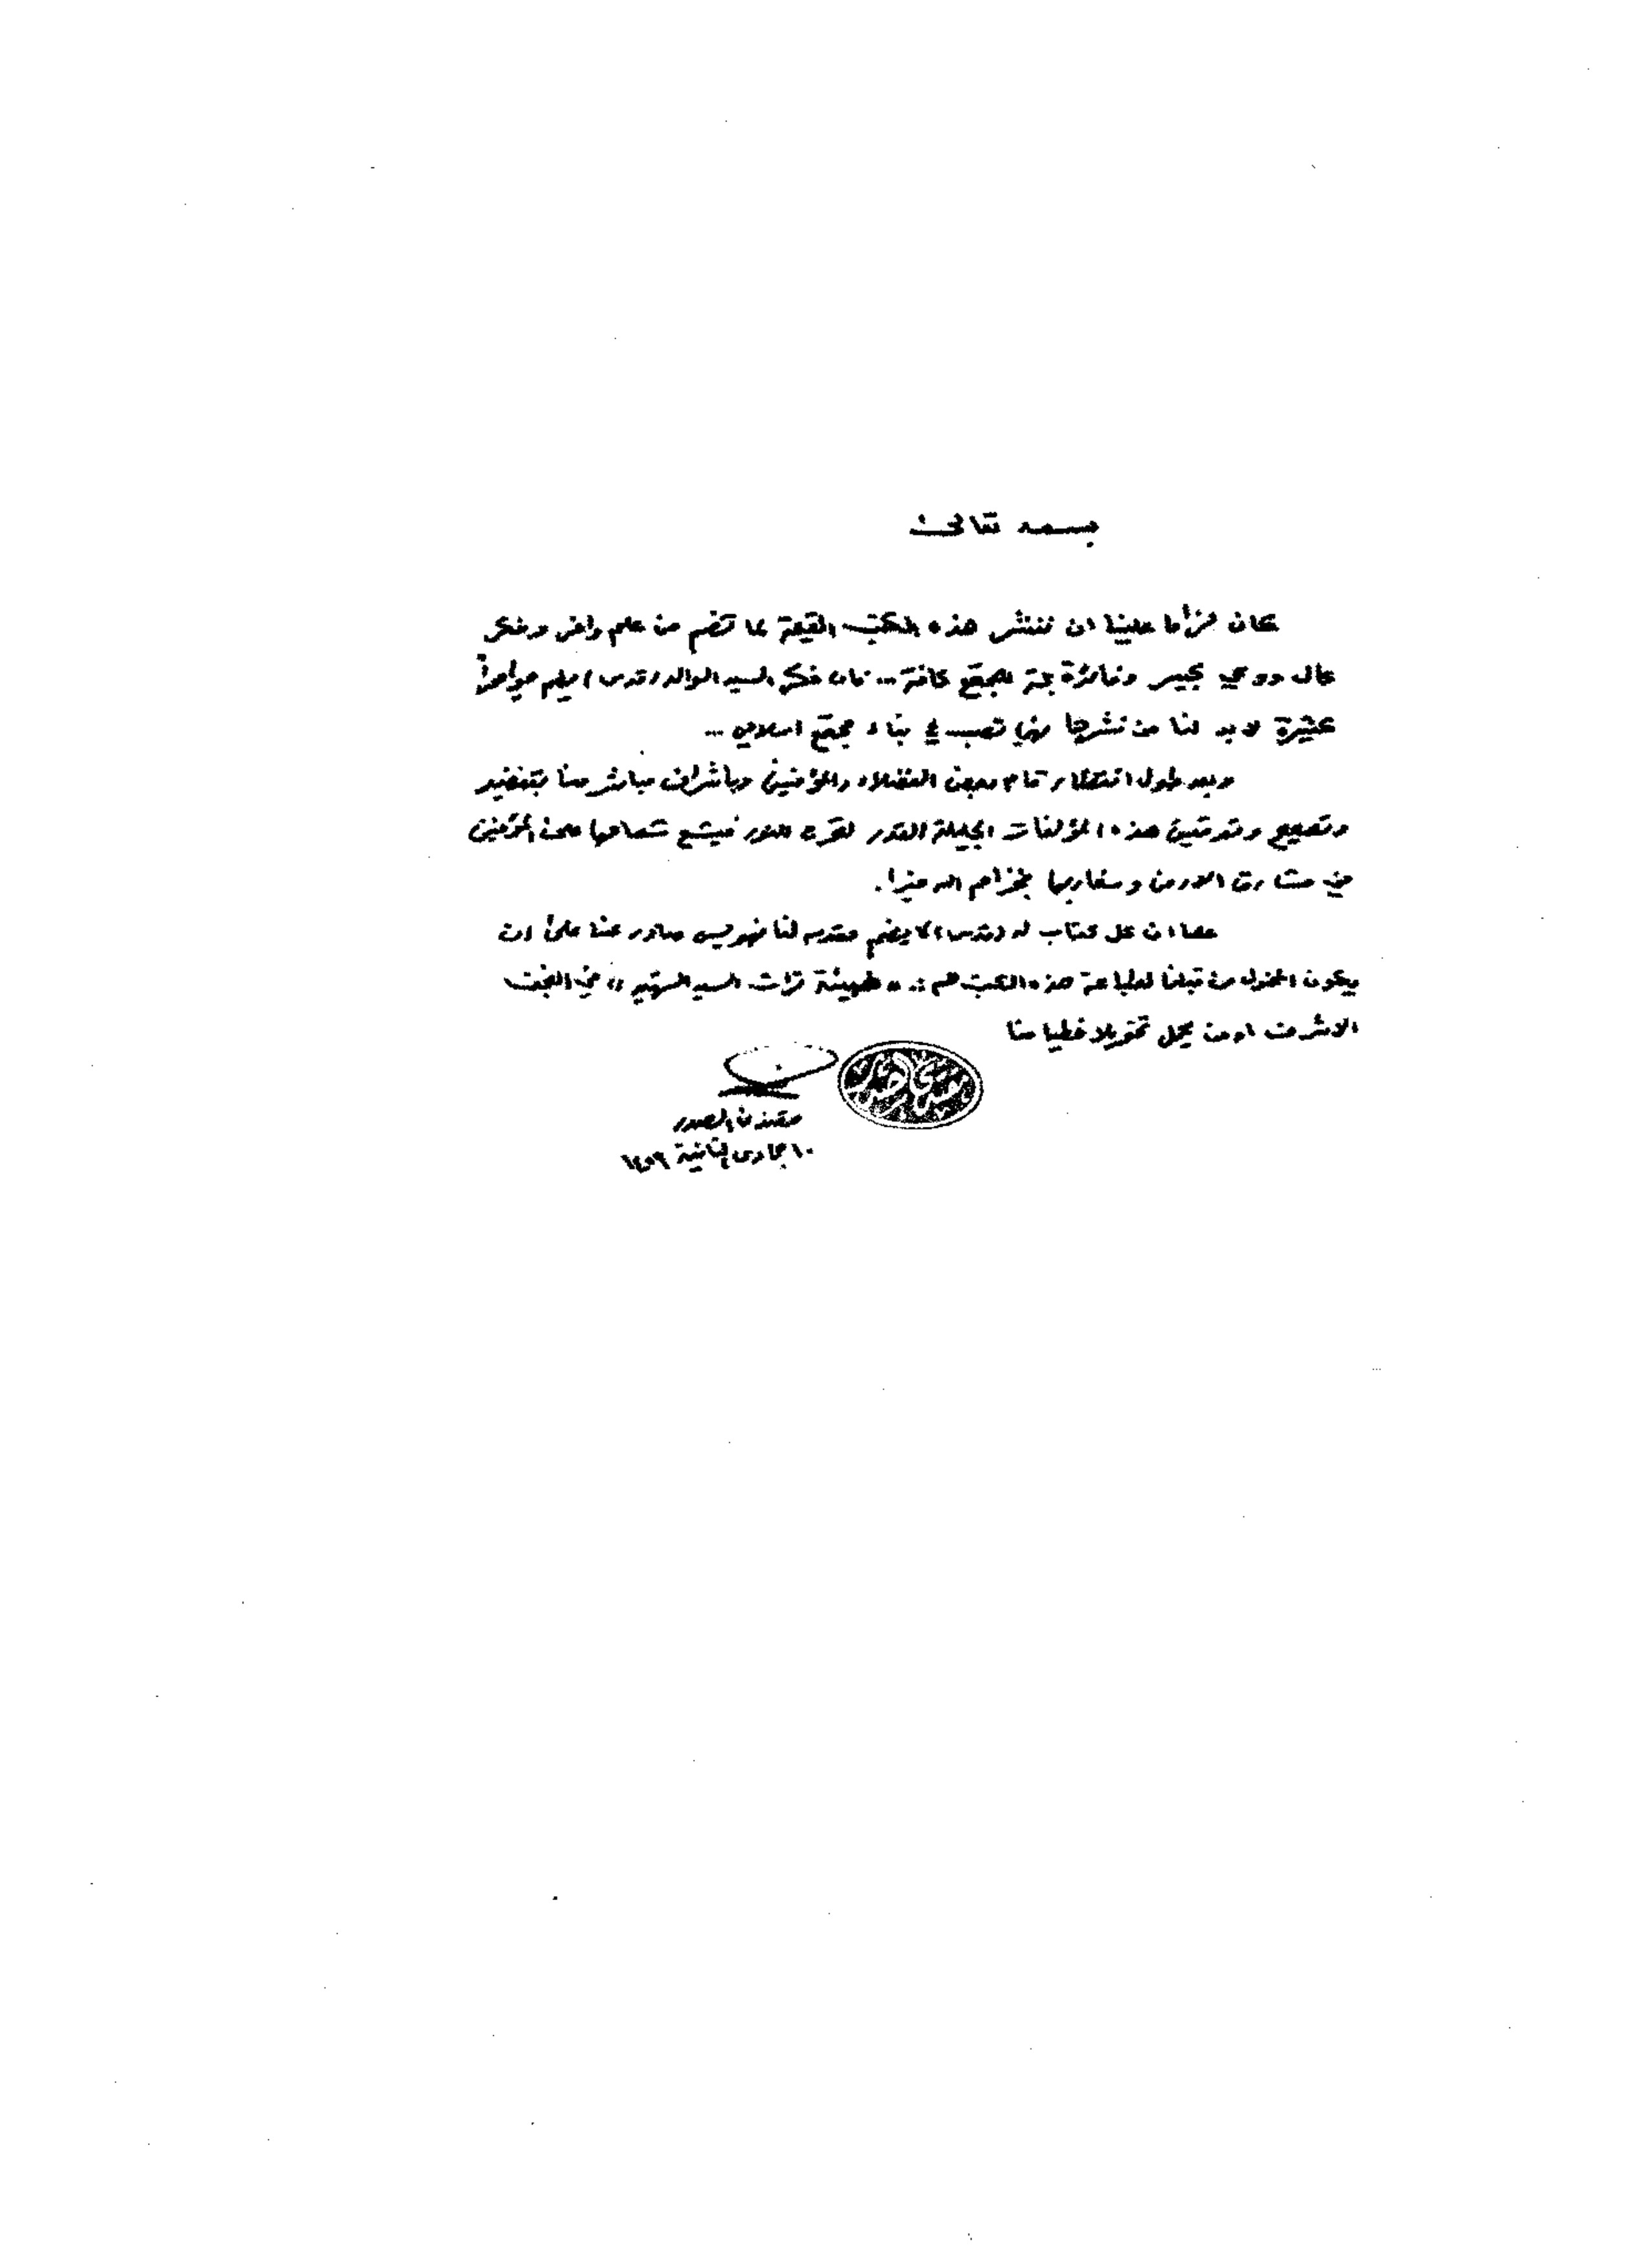 بسمه تعالى
كان لزاما علينا ان ننشر هذه الكتب القيمة لما تضم من علم وافر وفكر
عال ووعي كبير وفائدة جمة للمجتمع كافة ... فان فكر السيد الوالد (قدس) ملهم مواعظاً
كثيرة لابد لنا من نشرها فهي تصب في بناء مجتمع اسلامي ...
وبعد طول انتظار قام بعض الفضلاء والمؤمنين وباشراف مباشر منا بتنضيد
وتصحيح وتدقيق هذه المؤلفات الجليلة القدر لتخرج للنور فيشع شعاعها على المؤمنين
في مشارق الارض ومغاربها فجزاهم الله خيرا.
علما ان كل كتاب له (قدس) لا يضم مقدمه لنا فهو ليس صادر عنا على ان
يكون المخول من قبلنا لطباعة هذه الكتب هم :. " هيئة تراث السيد الشهيد " في النجف
الاشرف او من يحمل تخويلا خطيا منا
مقتدى الصدر
مقتدى الصدر
١٠ جمادى الثانية ١٤٢٩